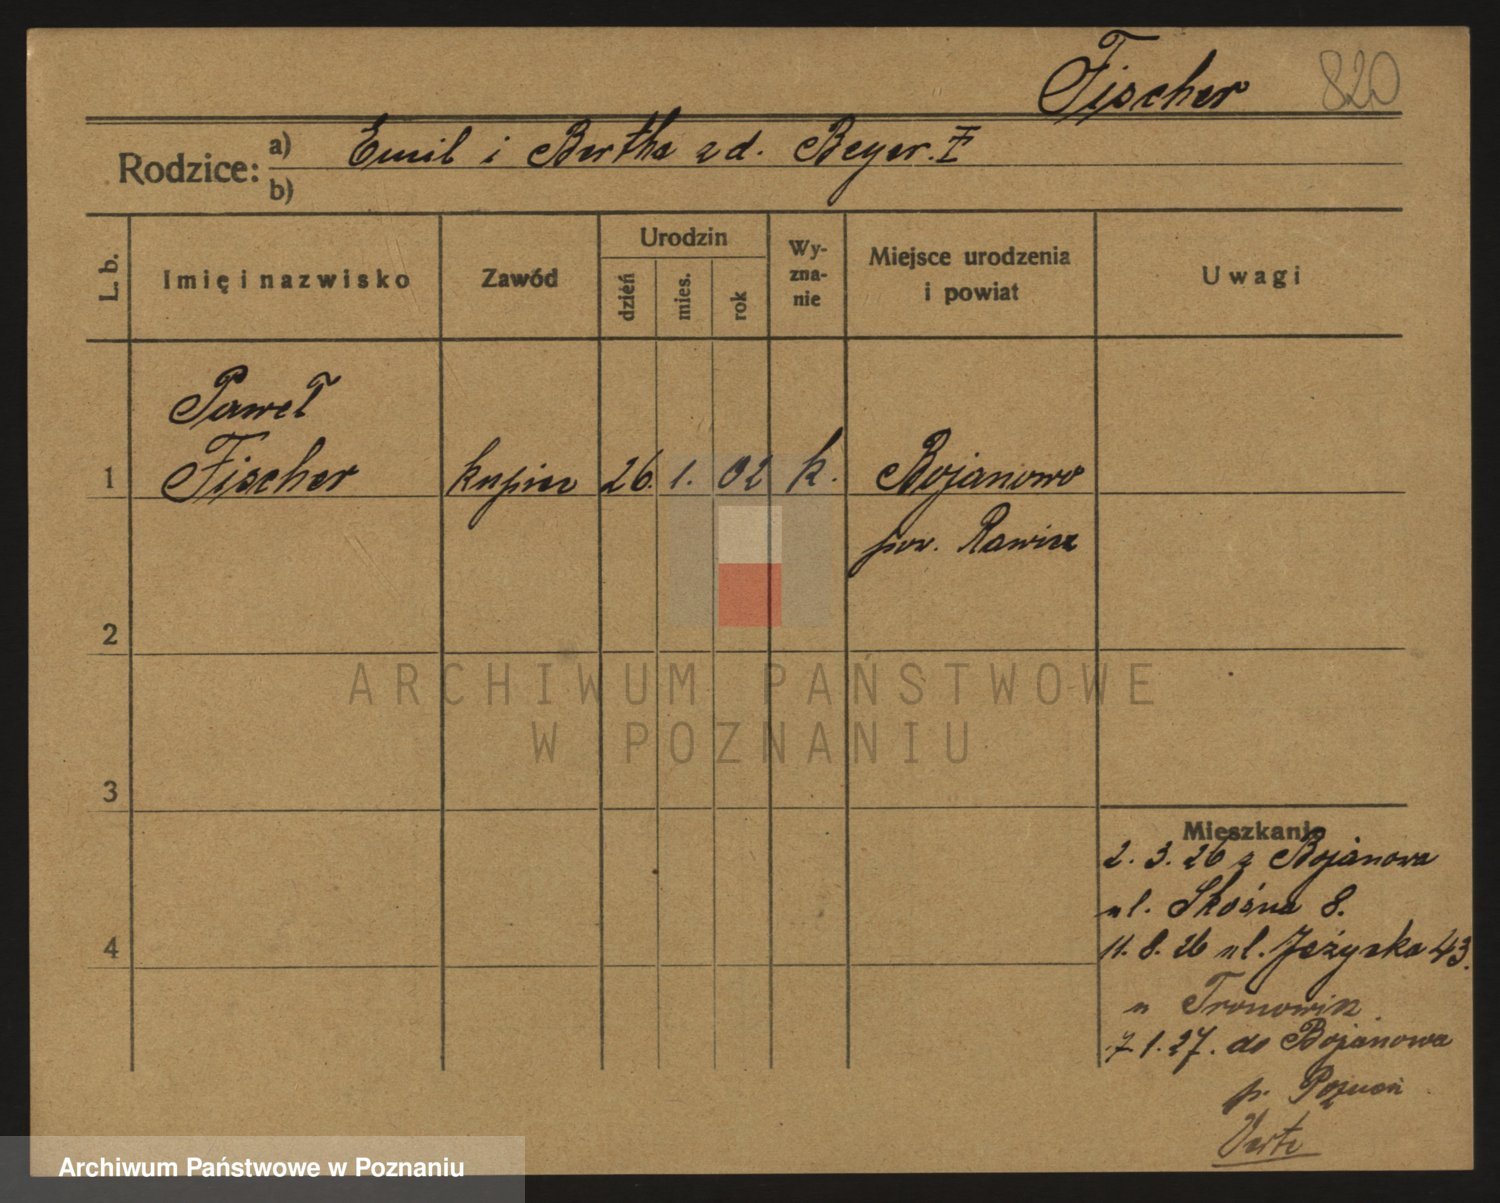 Fischer 820
Rodzice: a) Emil i Bertha zd. Beyer.
b)
L. b.
Imię i nazwisko
Zawód
Urodzin
dzień
mies.
rok
Wy-
zna-
nie
Miejsce urodzenia
i powiat
Uwagi
Paweł
1 Fischer kupiec 26. 1. 02 k. Bojanowo
pow. Rawicz
2
3
4
Mieszkanie
2. 3. 26 z Bojanowa
ul. Skośna 8.
11. 8. 26 ul. Jeżycka 43.
u
7.1.27. do Bojanowa
p. Poznań
Verte
ARCHIWUM PAŃSTWOWE
W POZNANIU
Archiwum Państwowe w Poznaniu